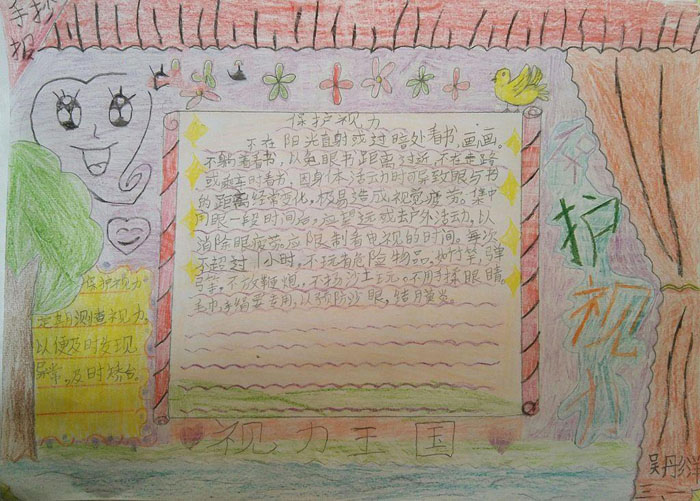 手抄
报
保护视力
不在阳光直射或过暗处看书、画画。
不躺着看书,以免眼书距离过近,不在走路
或乘车时看书,因身体活动时可导致眼与书
的距离经常变化,极易造成视觉疲劳。集中
用眼一段时间后,应望远或去户外活动,以
消除眼疲劳。应限制看电视的时间。每次
不超过1小时,不玩有危险物品。如竹竿,弹
弓等。不放鞭炮,不扬沙土玩。不用手揉眼睛。
毛巾手绢要专用,以预防沙眼,结膜炎。
保护视力
定期测查视力,
以便及时发现
异常,及时矫治。
护
视
力
视力王国
吴丹
三、